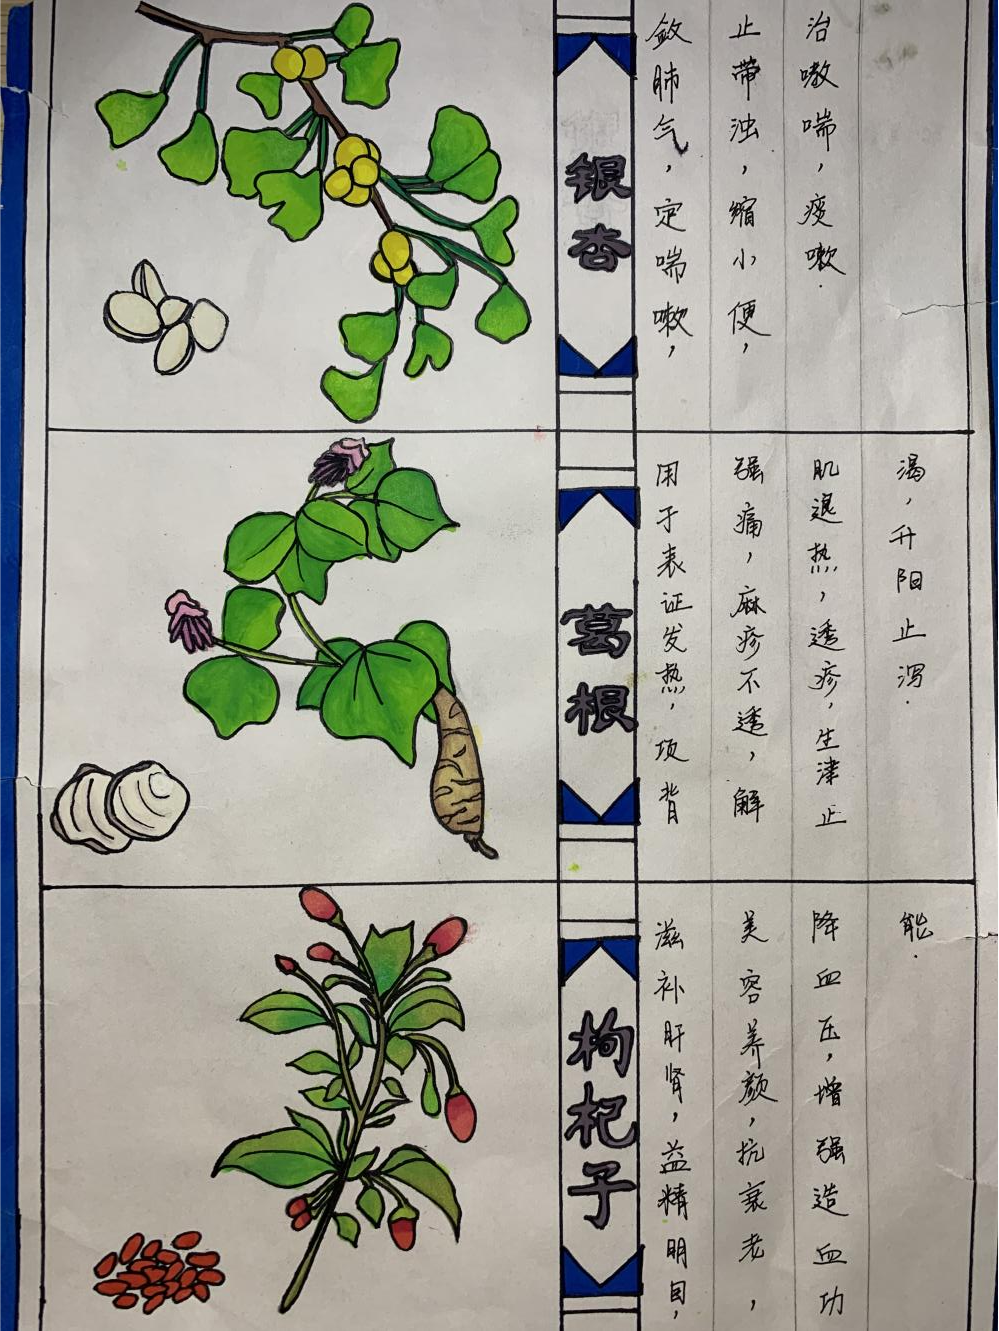 银杏
敛肺气，定喘嗽，
止带浊，缩小便，
治嗷喘，痰嗽.
葛根
用于表证发热，项背
强痛，麻疹不透，解
肌退热，透疹，生津止
渴，升阳止泻.
枸杞子
滋补肝肾，益精明目，
美容养颜，抗衰老，
降血压，增强造血功
能.